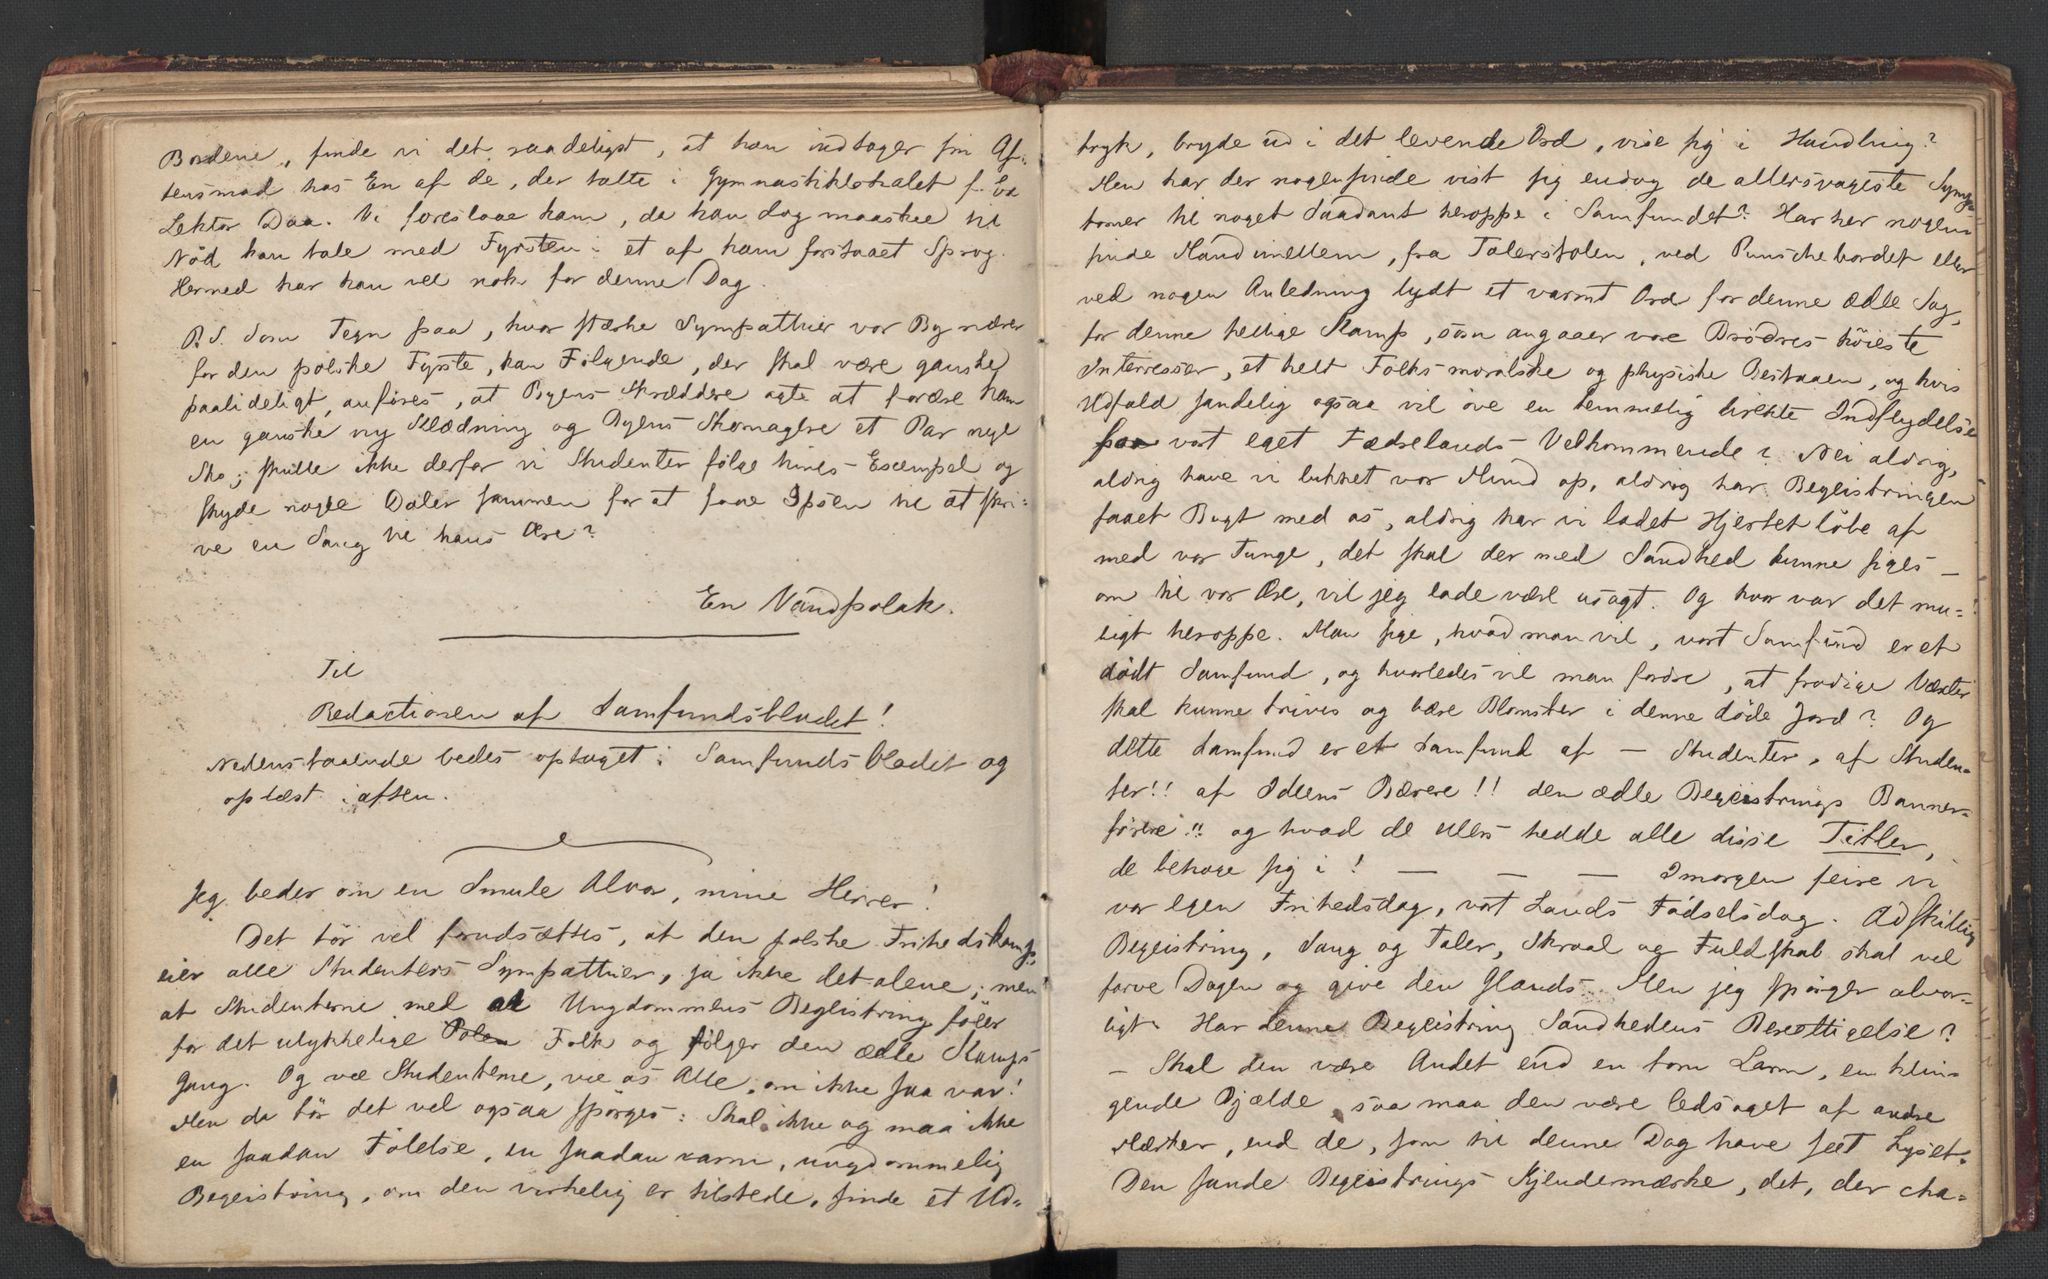 Bordene, finde vi det raadeligst, at han indtager sin Af-
tensmad hos En af de, der talte i Gymnastiklokalet f. Ex
Lektor Daa. Vi foreslaae ham, da han dog maaskee til
Nød kan tale med Fyrsten i et af ham forstaaet Sprog.
Hermed har han vel nok for denne Dag.
P.S. Som Tegn paa, hvor stærke Sympathier vor By nærer
for den polske Fyrste, kan Følgende, der skal være ganske
paalideligt, anføres, at Byens Skræddere agte at forære ham
en ganske ny Klædning og Byens Skomagere et Par nye
Sko; skulle ikke derfor vi Studenter følge hines Exempel og
skyde nogle Daler sammen for at faae Ipsen til at skri-
ve en Sang til hans Ære?
En Vandpolak.
Til
Redactionen af Samfundsbladet!
Nedenstaaende bedes optaget i Samfundsbladet og
oplæst iaften.
Jeg beder om en Smule Alvor, mine Herrer!
Det tør vel forudsættes, at den polske Frihedskamp
eier alle Studenters Sympathier, ja ikke det alene; men
at Studenterne med al Ungdommens Begeistring føler
for det ulykkelige Polen Folk og følger den ædle Kamps
Gang. Og vee Studenterne, vee os Alle, om ikke saa var!
Men da tør det vel ogsaa spørges: Skal ikke og maa ikke
en saadan Følelse, en saadan varm, ungdommelig
Begeistring, om den virkelig er tilstede, finde et Ud-
tryk, bryde ud i det levende Ord, vise sig i Handling?
Men har der nogensinde vist sig endog de allersvageste Symp-
tomer til noget Saadant heroppe i Samfundet? Har her nogen-
sinde Mand imellem, fra Talerstolen, ved Punschebordet eller
ved nogen Anledning lydt et varmt Ord for denne ædle Sag,
for denne hellige Kamp, som angaaer vore Brødres høieste
Interesser, et helt Folks moralske og physiske Bestaaen, og hvis
Udfald sandelig ogsaa vil øve en temmelig direkte Indflydelse
paa vort eget Fædrelands Velkommende? Nei aldrig,
aldrig have vi lukket vor Mund op, aldrig har Begeistringen
faaet Bugt med os, aldrig har vi ladet Hjertet løbe af
med vor Tunge, det skal der med Sandhed kunne siges –
om til vor Ære, vil jeg lade være usagt. Og hvor var det mu-
ligt heroppe. Man sige, hvad man vil, vort Samfund er et
dødt Samfund, og hvorledes vil man fordre, at frodige Væxter
skal kunne trives og bære Blomster i denne døde Jord? Og
dette Samfund er et Samfund af – Studenter, af Studen-
ter!! af Ideens Bærere!! den ædle Begeistrings Banner-
førere!! og hvad de ellers hedde alle disse Titler,
de behage sig i! – – – Imorgen feire vi
vor egen Frihedsdag, vort Lands Fødselsdag. Adskillig
Begeistring, Sang og Taler, Skraal og Fuldskab skal vel
farve Dagen og give den Glands. Men jeg spørger alvor-
ligt: Har denne Begeistring Sandhedens Berettigelse?
– Skal den være Andet end en tom Larm, en klin-
gende Bjælde, saa maa den være ledsaget af andre
Mærker, end de, som til denne Dag have seet Lyset.
Den sande Begeistrings Kjendemærke, det, der cha-